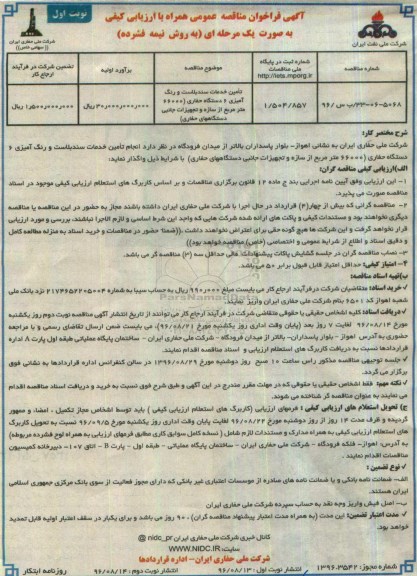 نوبت اول
آگهی فراخوان مناقصه عمومی همراه با ارزیابی کیفی
به صورت یک مرحله ای (به روش نیمه فشرده)
شرکت ملی نفت ایران
شرکت ملی حفاری ایران
(سهامی خاص)
شماره مناقصه
شماره ثبت در پایگاه ملی مناقصات
http://iets.mporg.ir
موضوع مناقصه
برآورد اولیه
تضمین شرکت در فرآیند ارجاع کار
۹۶/ب س/۳۳-۰۶-۵۰۶۸
۱/۵۰۴/۸۵۷
تأمین خدمات سندبلاست و رنگ آمیزی ۶ دستگاه حفاری (۶۶۰۰۰ متر مربع از سازه و تجهیزات جانبی دستگاههای حفاری)
۳۰,۰۰۰,۰۰۰,۰۰۰ ریال
۱,۵۰۰,۰۰۰,۰۰۰ ریال
شرح مختصر کار:
شرکت ملی حفاری ایران به نشانی اهواز- بلوار پاسداران بالاتر از میدان فرودگاه در نظر دارد انجام تأمین خدمات سندبلاست و رنگ آمیزی ۶
دستگاه حفاری (۶۶۰۰۰ متر مربع از سازه و تجهیزات جانبی دستگاههای حفاری) با شرایط ذیل واگذار نماید:
الف)ارزیابی کیفی مناقصه گران:
۱- این ارزیابی وفق آیین نامه اجرایی بند ج ماده ۱۲ قانون برگزاری مناقصات و بر اساس کاربرگ های استعلام ارزیابی کیفی موجود در اسناد
مناقصه صورت می پذیرد.
۲- مناقصه گرانی که بیش از چهار(۴) قرارداد در حال اجرا با شرکت ملی حفاری ایران داشته باشند مجاز به حضور در این مناقصه یا مناقصه
دیگری نخواهند بود و مستندات کیفی و پاکت های ارائه شده شرکت هایی که واجد این شرط اساسی و لازم الاجرا نباشند، بررسی و مورد ارزیابی
قرار نخواهد گرفت و این شرکت ها هیچ گونه حقی برای اعتراض نخواهند داشت.((ضمنا" حضور در مناقصات و خرید اسناد به منزله مطالعه کامل
و دقیق اسناد و اطلاع از شرایط عمومی و اختصاصی (خاص) مناقصه خواهد بود))
۳- نصاب مناقصه گران در جلسه گشایش پاکات پیشنهادات مالی حداقل سه (۳) مناقصه گر می باشد.
۴- امتیاز کیفی: حداقل امتیاز قابل قبول برابر ۵۰ می باشد.
ب)تهیه اسناد مناقصه:
√ خرید اسناد: متقاضیان شرکت درفرآیند ارجاع کار می بایست مبلغ ۹۹۰,۰۰۰ ریال به حساب سیبا به شماره ۲۱۷۴۶۵۶۲۰۵۰۰۴ نزد بانک ملی
شعبه اهواز کد ۶۵۰۱ بنام شرکت ملی حفاری ایران واریز نمایند.
√ دریافت اسناد: کلیه اشخاص حقیقی یا حقوقی متقاضی شرکت در فرآیند ارجاع کار می توانند از تاریخ انتشار آگهی مناقصه نوبت دوم روز یکشنبه
مورخ ۹۶/۰۸/۱۴ لغایت ۷ روز بعد (پایان وقت اداری روز یکشنبه مورخ ۹۶/۰۸/۲۱)، می بایست ضمن ارسال تقاضای رسمی و با مراجعه
حضوری به آدرس اهواز - بلوار پاسداران- بالاتر از میدان فرودگاه - شرکت ملی حفاری ایران - ساختمان پایگاه عملیاتی طبقه اول پارت A اداره
قراردادها نسبت به دریافت کاربرگ های استعلام ارزیابی و اسناد مناقصه اقدام نمایند.
√ جلسه توجیهی مناقصه مذکور راس ساعت ۱۰ صبح روز دوشنبه مورخ ۱۳۹۶/۰۸/۲۹ در سالن کنفرانس اداره قراردادها به نشانی فوق
برگزار می گردد.
√ نکته مهم: فقط اشخاص حقیقی یا حقوقی که در مهلت مقرر مندرج در این آگهی و طبق شرح فوق نسبت به خرید و دریافت اسناد مناقصه اقدام
می نمایند به عنوان مناقصه گر شناخته می شوند.
ج) تحویل استعلام های ارزیابی کیفی : فرمهای ارزیابی (کاربرگ های استعلام ارزیابی کیفی ) باید توسط اشخاص مجاز تکمیل ، امضاء و ممهور
گردیده و ظرف مدت ۱۴ روز از روز دوشنبه مورخ ۹۶/۰۸/۲۲ لغایت پایان وقت اداری روز یکشنبه مورخ ۹۶/۰۹/۵ نسبت به تحویل کاربرگ
های استعلام ارزیابی کیفی به همراه مدارک و مستندات لازم شامل ( نسخه کامل سوابق کاری مطابق فرمهای ارزیابی به همراه لوح فشرده مربوطه)
به آدرس: اهواز- فلکه فرودگاه - شرکت ملی حفاری ایران - ساختمان پایگاه عملیاتی - طبقه اول - پارت B - اتاق ۱۰۷- دبیرخانه کمیسیون
مناقصات اقدام نمایند .
√ نوع تضمین :
الف- ضمانت نامه بانکی و یا ضمانت نامه های صادره از موسسات اعتباری غیر بانکی که دارای مجوز فعالیت از سوی بانک مرکزی جمهوری اسلامی
ایران هستند
ب- اصل فیش واریز وجه نقد به حساب سپرده شرکت ملی حفاری ایران
√ مدت اعتبار تضمین: این مدت (به همراه مدت اعتبار پیشنهاد مناقصه گران) ، ۹۰ روز می باشد و برای یکبار در سقف اعتبار اولیه قابل تمدید
خواهد بود.
کانال خبری شرکت ملی حفاری ایران @ nidc_pr
سایت: WWW.NIDC.IR
شرکت ملی حفاری ایران- اداره قراردادها
شماره مجوز: ۱۳۹۶.۳۵۴۲
تاریخ انتشار نوبت اول : ۹۶/۰۸/۱۳
تاریخ انتشار نوبت دوم : ۹۶/۰۸/۱۴
روزنامه ابتکار